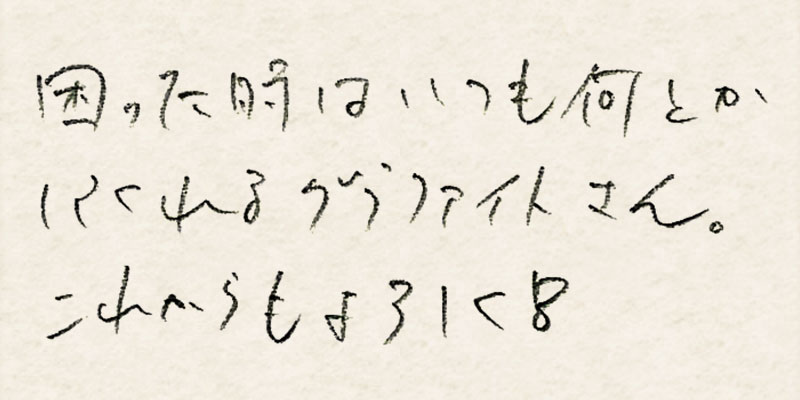 困った時はいつも何とか
してくれるグラファイトさん。
これからもよろしく8